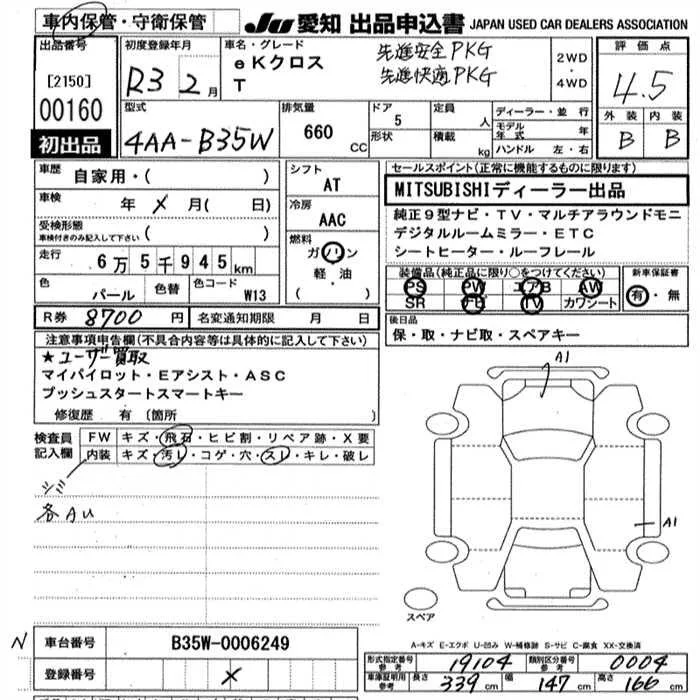 車内保管・守衛保管
JU 愛知 出品申込書 JAPAN USED CAR DEALERS ASSOCIATION
出品番号
[2150]
00160
初出品
初度登録年月
R3 2月
車名・グレード
eKクロス
T
先進安全PKG
先進快適PKG
2WD
・
4WD
評価点
4.5
外装 内装
B B
型式
4AA-B35W
排気量
660
CC
ドア
5
形状
定員
人
積載
kg
ディーラー・並行
モデル
年式 年
ハンドル 左・右
車歴
自家用・( )
車検
年 × 月( 日)
受検形態
車検付きのみ記入して下さい ( )
走行
6万5千945km
色
パール
色替
色コード
W13
シフト
AT
冷房
AAC
燃料
ガソリン
・
軽・油
( )
セールスポイント(正常に機能するものに限ります)
MITSUBISHIディーラー出品
純正9型ナビ・TV・マルチアラウンドモニ
デジタルルームミラー・ETC
シートヒーター・ルーフレール
装備品(純正品に限り○をつけてください)
PS PW エアB AW
SR FB TV カワシート
新車保証書
有・無
R券 8700円
名変通知期限 月 日
後日品
保・取・ナビ取・スペアキー
注意事項申告欄(不具合内容等は具体的に記入して下さい)
★ユーザー買取
マイパイロット・Eアシスト・ASC
プッシュスタートスマートキー
修復歴 有(箇所
検査員
記入欄
FW キズ・飛石・ヒビ割・リペア跡・X要
内装 キズ・汚レ・コゲ・穴・スレ・キレ・破レ
シミ
各AU
A1
A1
スペア
A-キズ E-エクボ U-凹み W-補修跡 S-サビ C-腐食 XX-交換済
N
車台番号
B35W-0006249
登録番号
×
形式指定番号
参考
19104
類別区分番号
参考
0004
車庫証明用
参考
長さ 339cm 幅 147cm 高さ 166cm